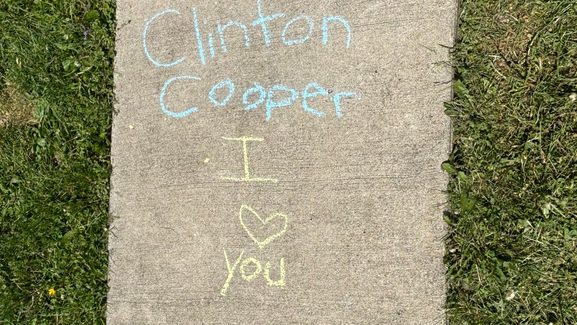 Clinton
Cooper
I
♡
you